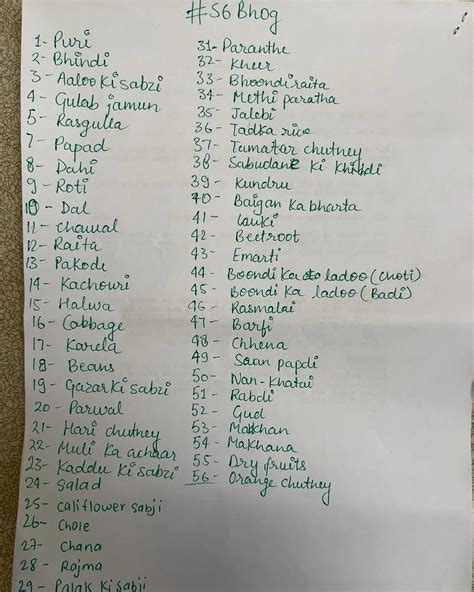 #56 Bhog
1- Puri
2- Bhindi
3- Aaloo Ki Sabzi
4- Gulab jamun
5- Rasgulla
7- Papad
8- Dahi
9- Roti
10- Dal
11- chawal
12- Raita
13- Pakode
14- Kachouri
15- Halwa
16- Cabbage
17- Karela
18- Beans
19- Gazar Ki sabzi
20- Parwal
21- Hari chutney
22- Muli Ka achaar
23- Kaddu Ki sabzi
24- Salad
25- califlower sabji
26- Chole
27- Chana
28- Rajma
29- Palak Ki sabji
31- Paranthe
32- Kheer
33- Bhoondi raita
34- Methi paratha
35- Jalebi
36- Tadka rice
37- Tamatar chutney
38- Sabudane Ki Khichdi
39- Kundru
40- Baigan Ka bharta
41- Lauki
42- Beetroot
43- Emarti
44- Boondi Ka ladoo (choti)
45- Boondi Ka ladoo (Badi)
46- Rasmalai
47- Barfi
48- Chhena
49- Soan papdi
50- Nan-Khatai
51- Rabdi
52- Gud
53- Makhan
54- Makhana
55- Dry fruits
56- Orange chutney